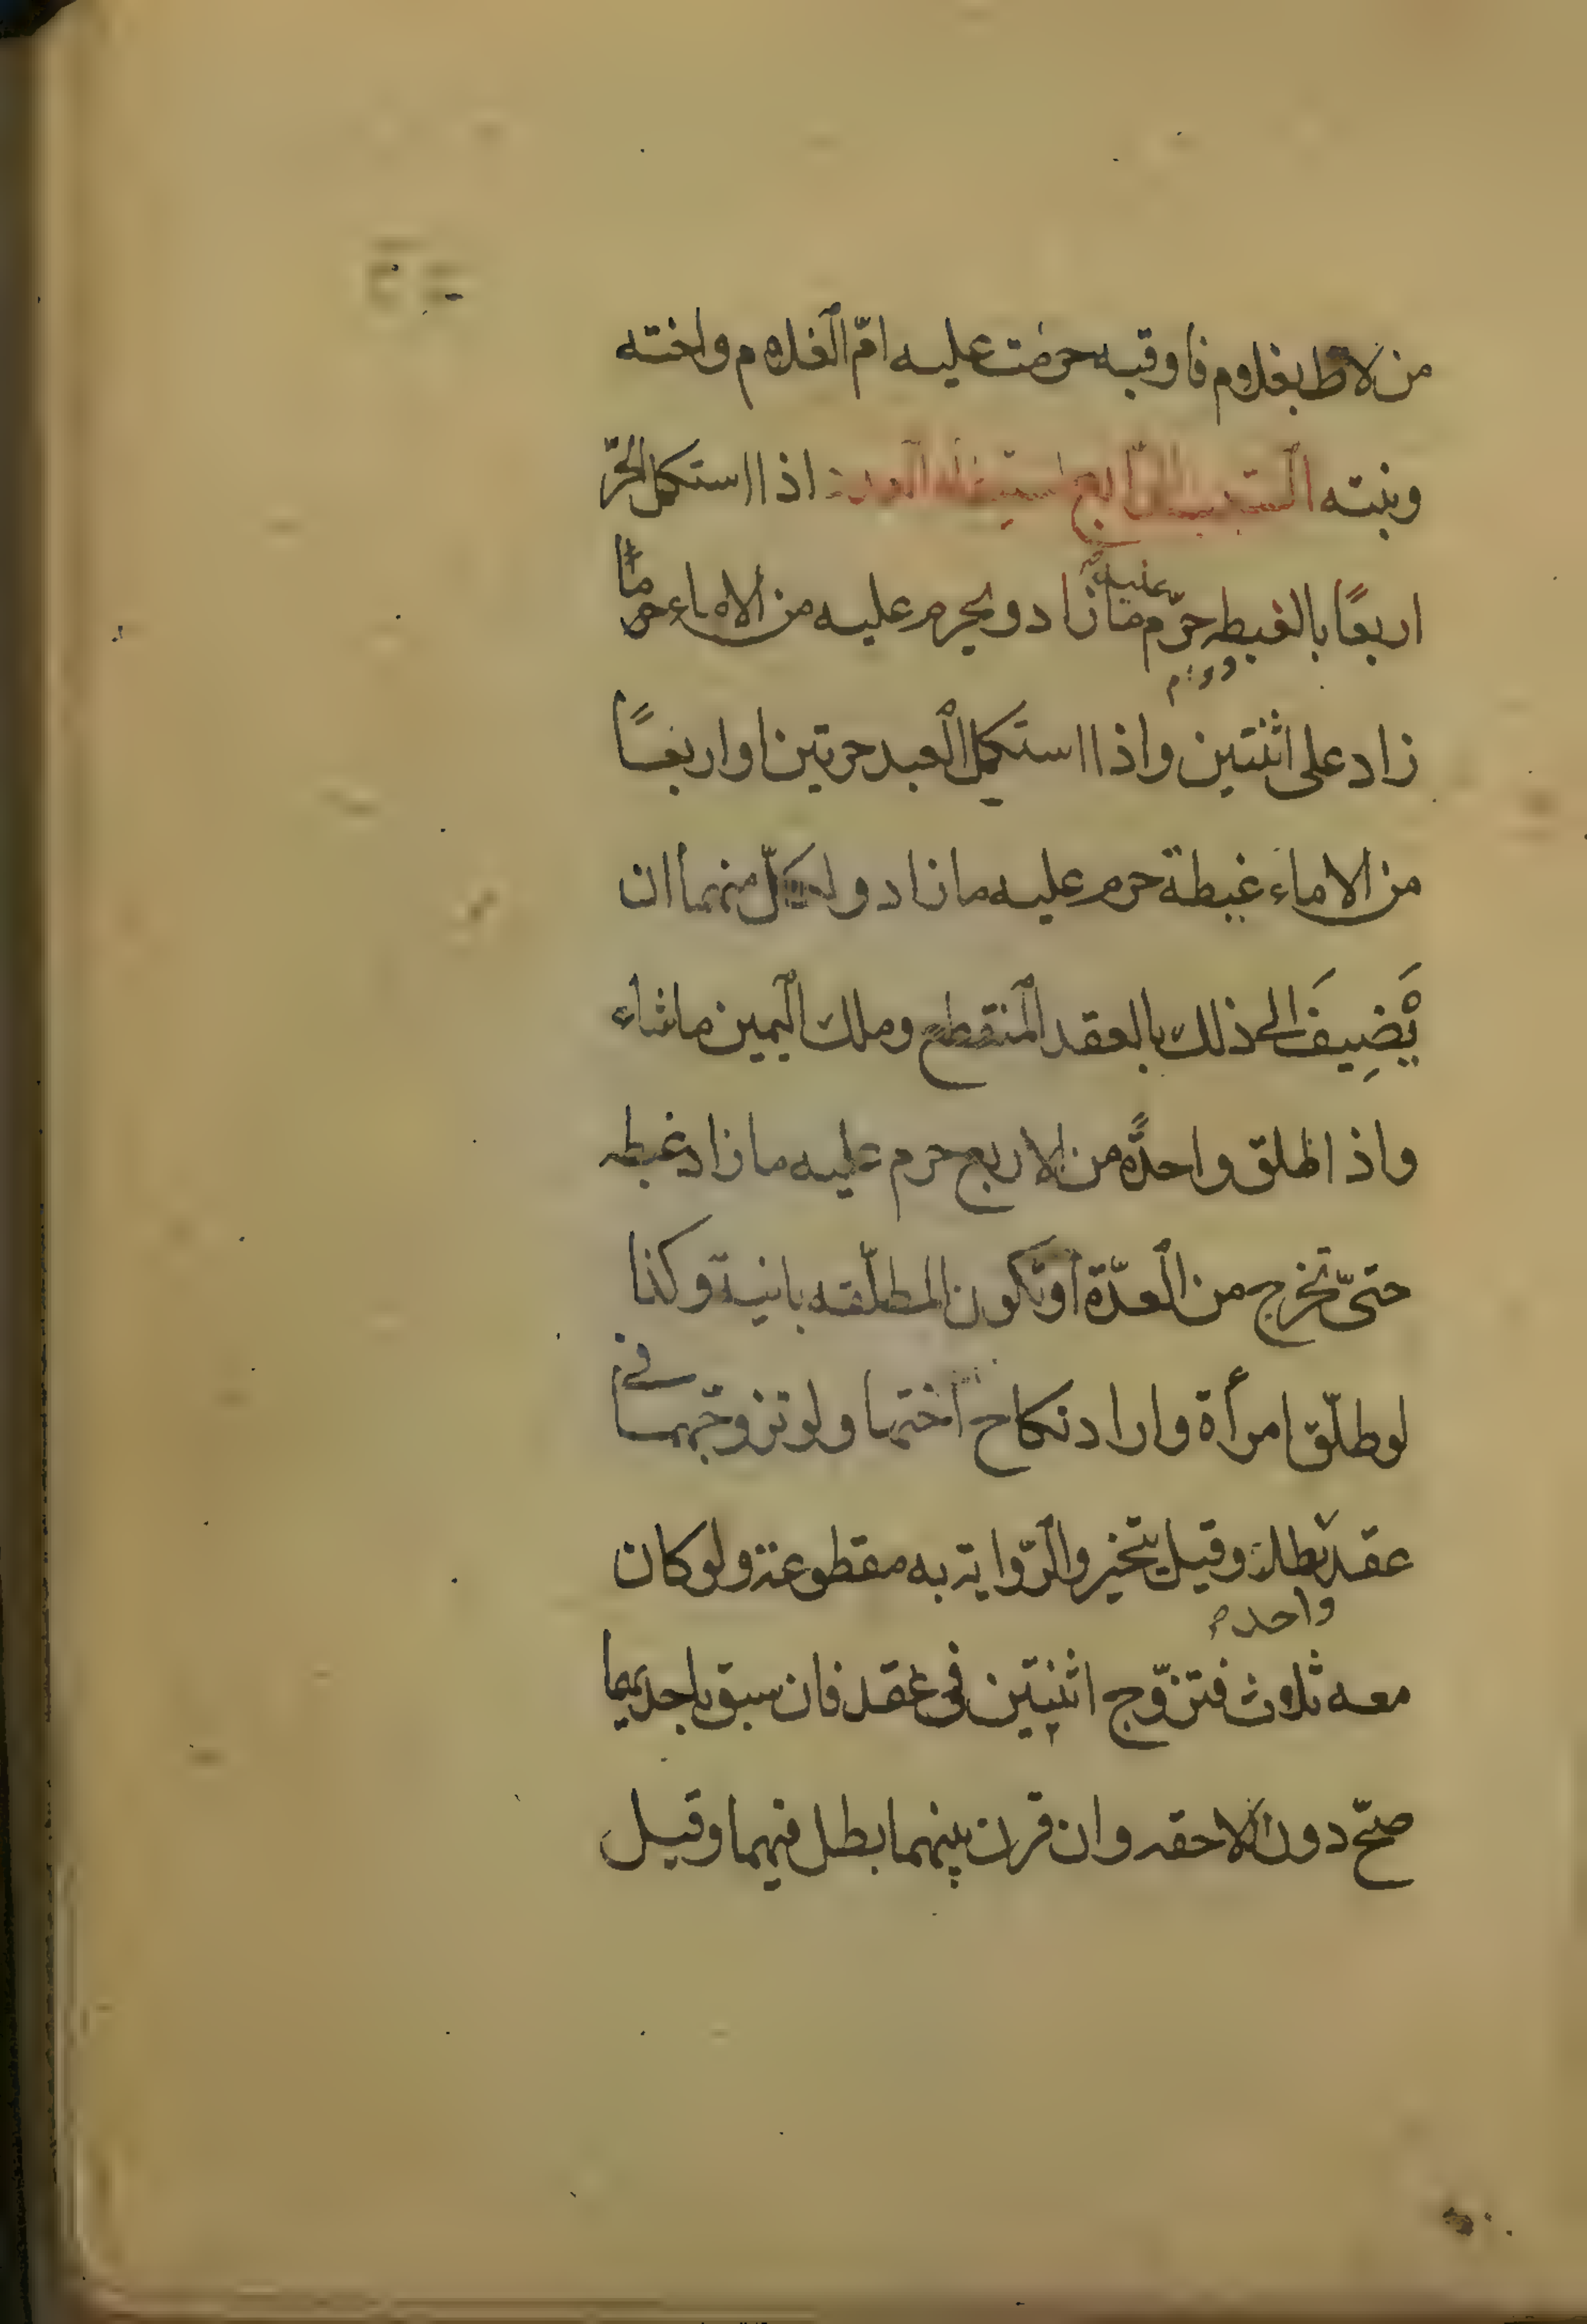 من لاط بغلام فاوقبه حرمت عليه امّ الغلام واخته
وبنته السّبب الرّابع استيفاء العدد اذا استكمل الحرّ
اربعًا بالغبطه حرّم عليه ما زاد ويحرم عليه من الاماء ما
زاد على اثنتين واذا استكمل العبد حرتين او اربعًا
من الاماء غبطة حرم عليه ما زاد ولكلّ منهما ان
يُضِيفَ الى ذلك بالعقد المنقطع وملك اليمين ما شاء
واذا طلق واحدةً من الاربع حرم عليه ما زاد غبطه
حتىّ تخرج من العدّة او تكون المطلّقه باينة وكذا
لو طلّق امرأة واراد نكاح اختها ولو تزوجّهما في
عقد بطل وقيل يتخير والرّواية به مقطوعة ولو كان
واحد
معه ثلاث فتزوّج اثنتين في عقد فان سبق باحديهما
صحّ دون اللاحقه وان قرن بينهما بطل فيهما وقيل